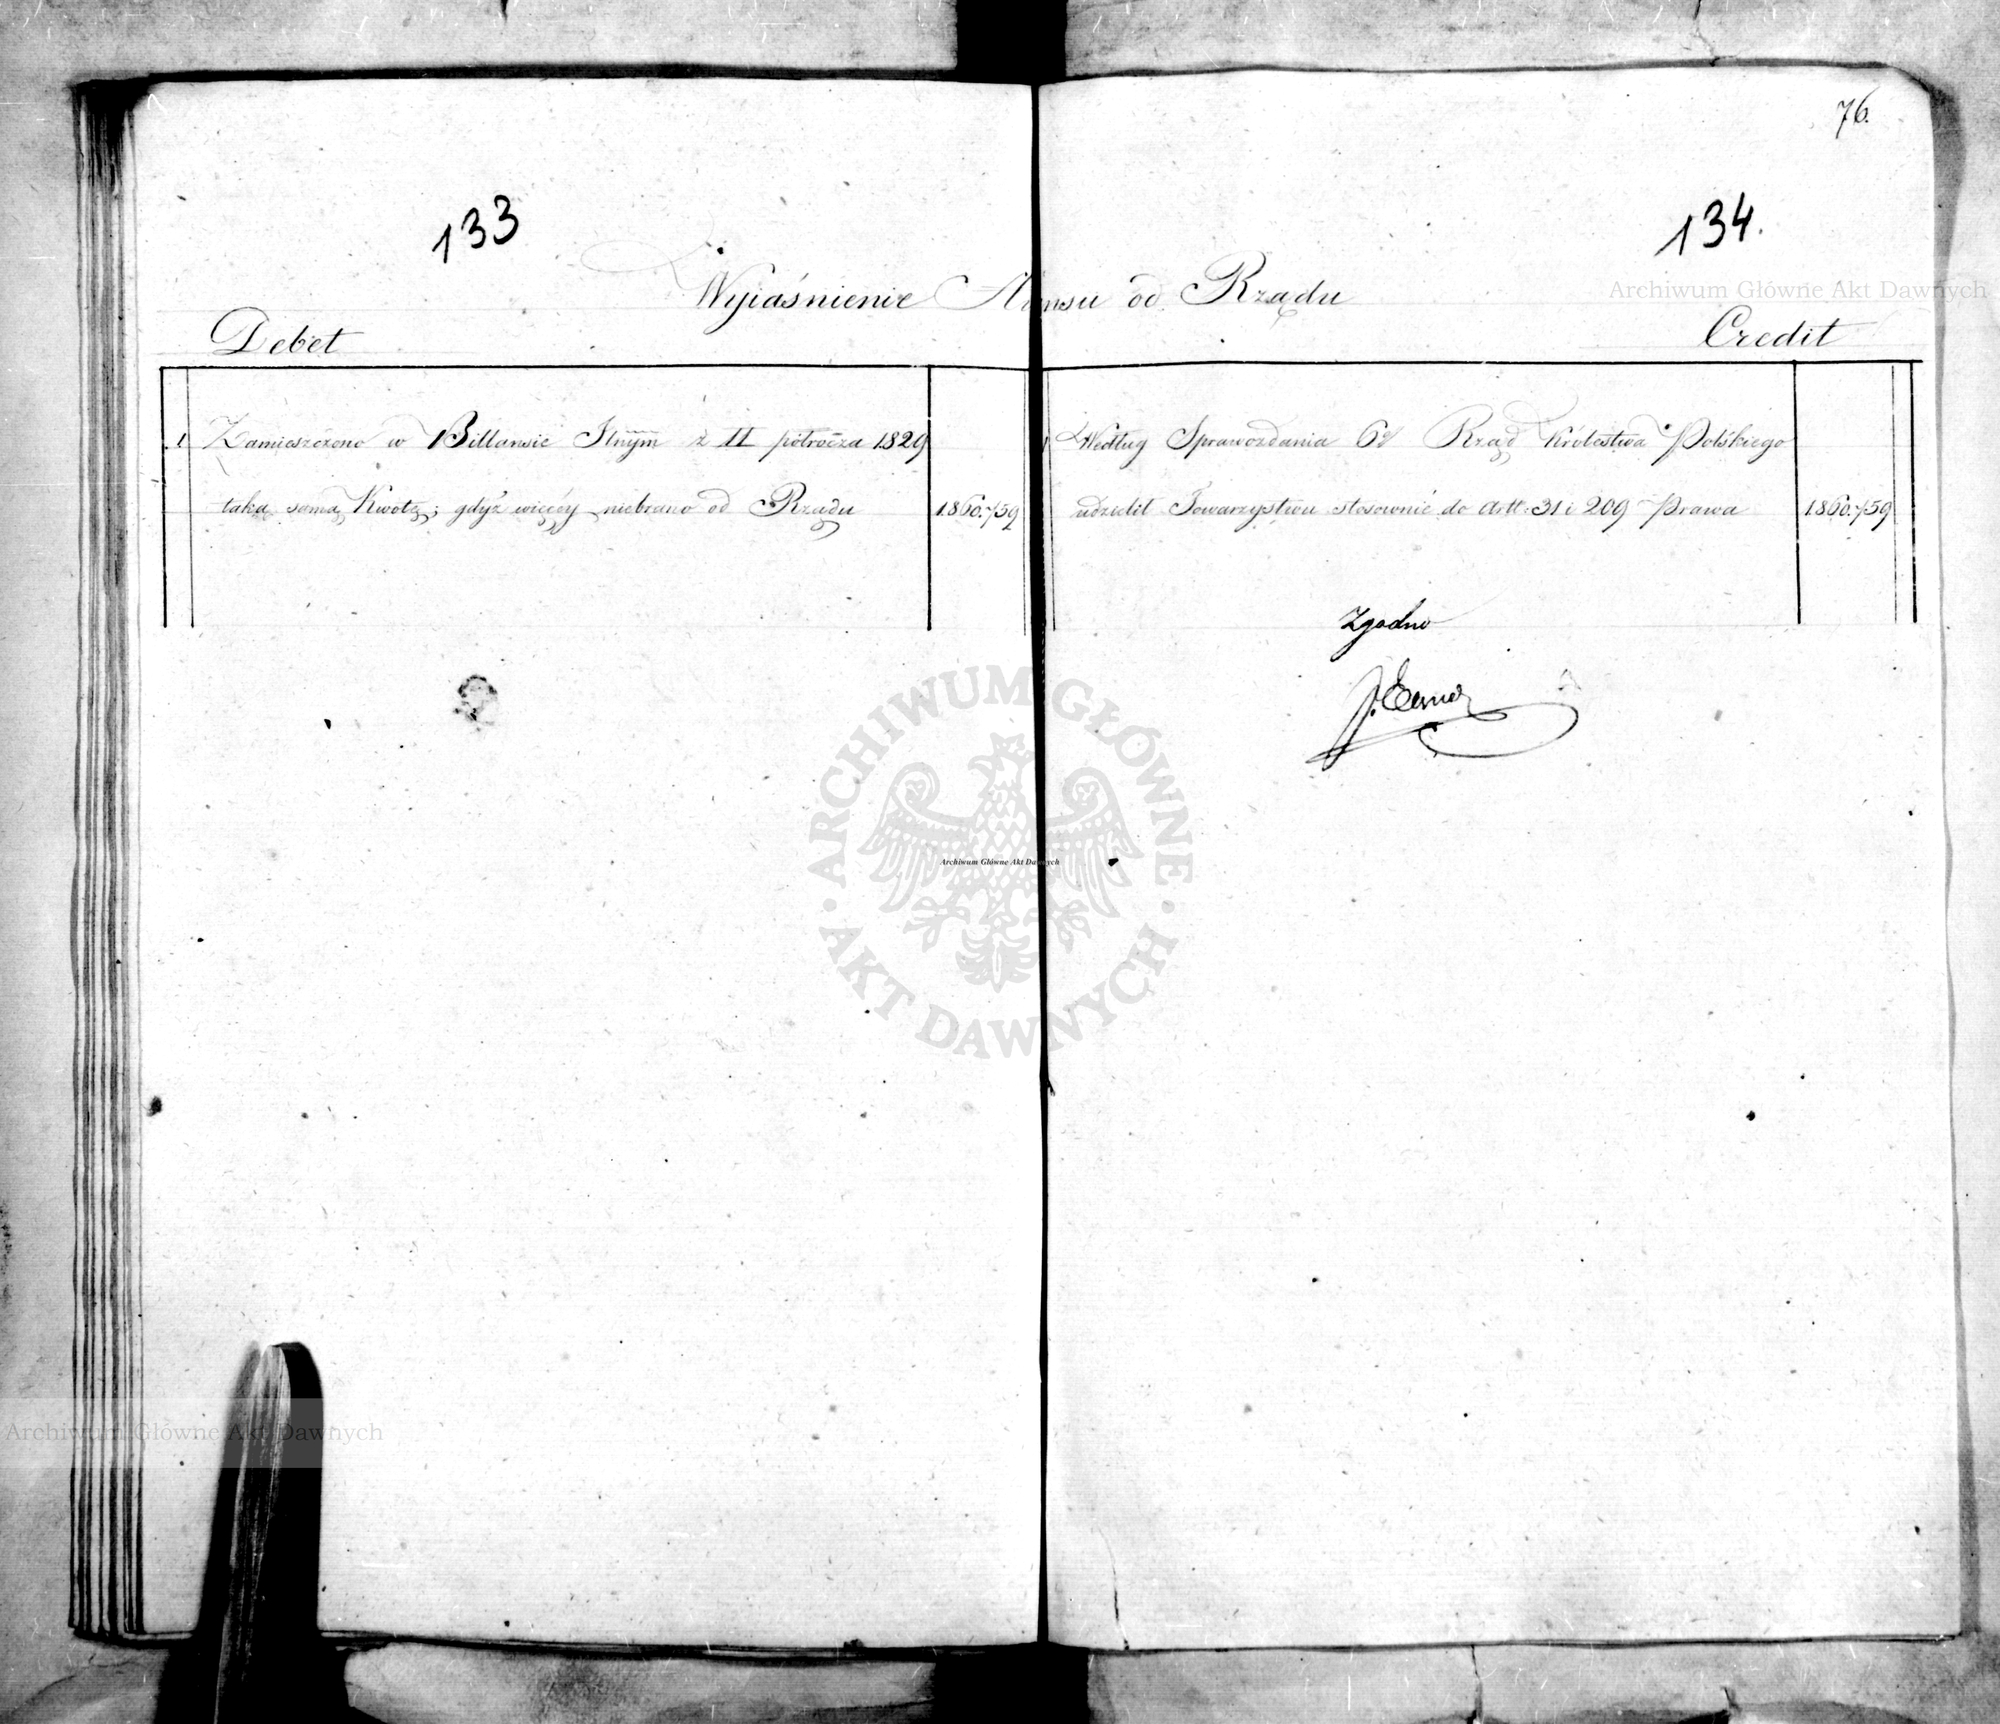 76.
133
134.
Wyiaśnienie Awansu od Rządu
Debet
Credit
1 Zamieszczono w Billansie Itnym z II półrocza 1829
taką samą Kwotę; gdyż więcéy niebrano od Rządu 1.860.759
1 Według Sprawozdania 6º Rząd Królestwa Polskiego
udzielił Towarzystwu stosownie do Artt: 31 i 209 Prawa 1.860.759
Zgodno
Archiwum Główne Akt Dawnych
ARCHIWUM GŁÓWNE AKT DAWNYCH
Archiwum Główne Akt Dawnych
Archiwum Główne Akt Dawnych